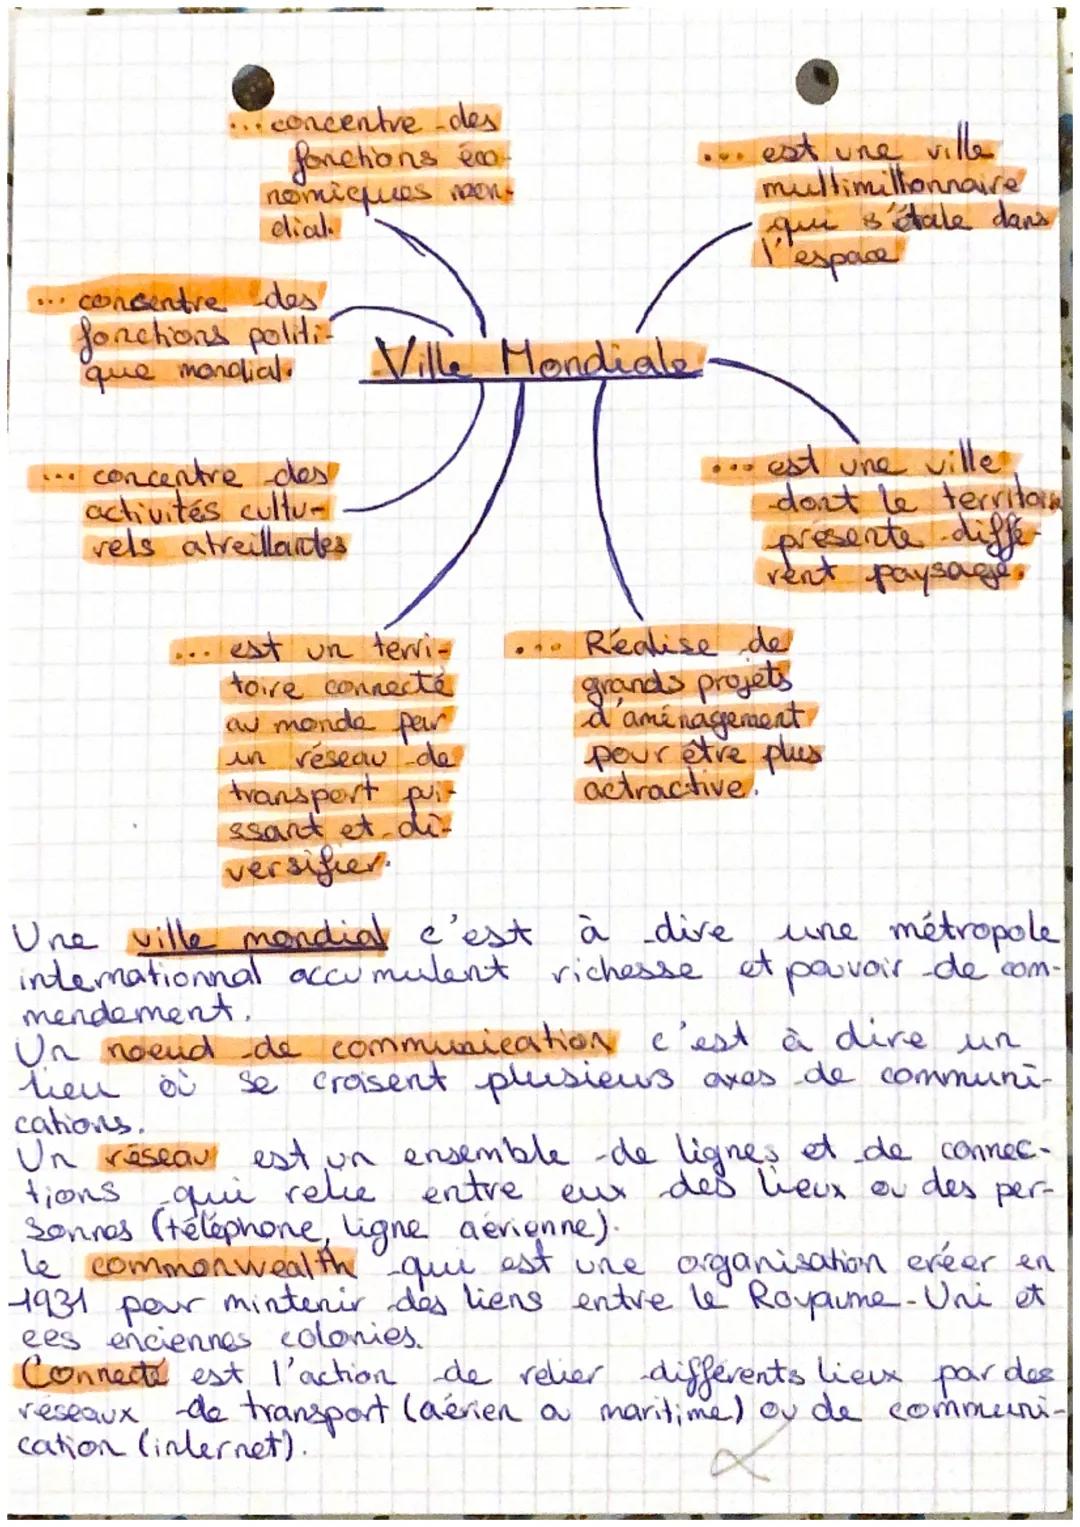 ... concentre des
fonctions éco-
nomiques mon-
dial.
... est une ville
multimillionnaire
qui s'étale dans
l'espace
... consentre des
fonctions politi-
que mondial.
Ville Mondiale
... concentre des
activités cultu-
rels atreillantes
... est une ville
dont le territoire
présente diffé-
rent paysage.
... est un terri-
toire connecté
au monde par
un réseau de
transport pui-
ssant et di-
versifier.
... Réalise de
grands projets
d'aménagement
pour être plus
actractive.
Une ville mondial c'est à dire une métropole
internationnal accumulent richesse et pouvoir de com-
mendement.
Un noeud de communication c'est à dire un
lieu où se croisent plusieurs axes de communi-
cations.
Un réseau est un ensemble de lignes et de connec-
tions qui relie entre eux des lieux ou des per-
sonnes (téléphone, ligne aérienne).
le commonwealth qui est une organisation créer en
1931 pour mintenir des liens entre le Royaume-Uni et
ces enciennes colonies.
Connecté est l'action de relier différents lieux par des
réseaux de transport (aérien ou maritime) ou de communi-
cation (internet).